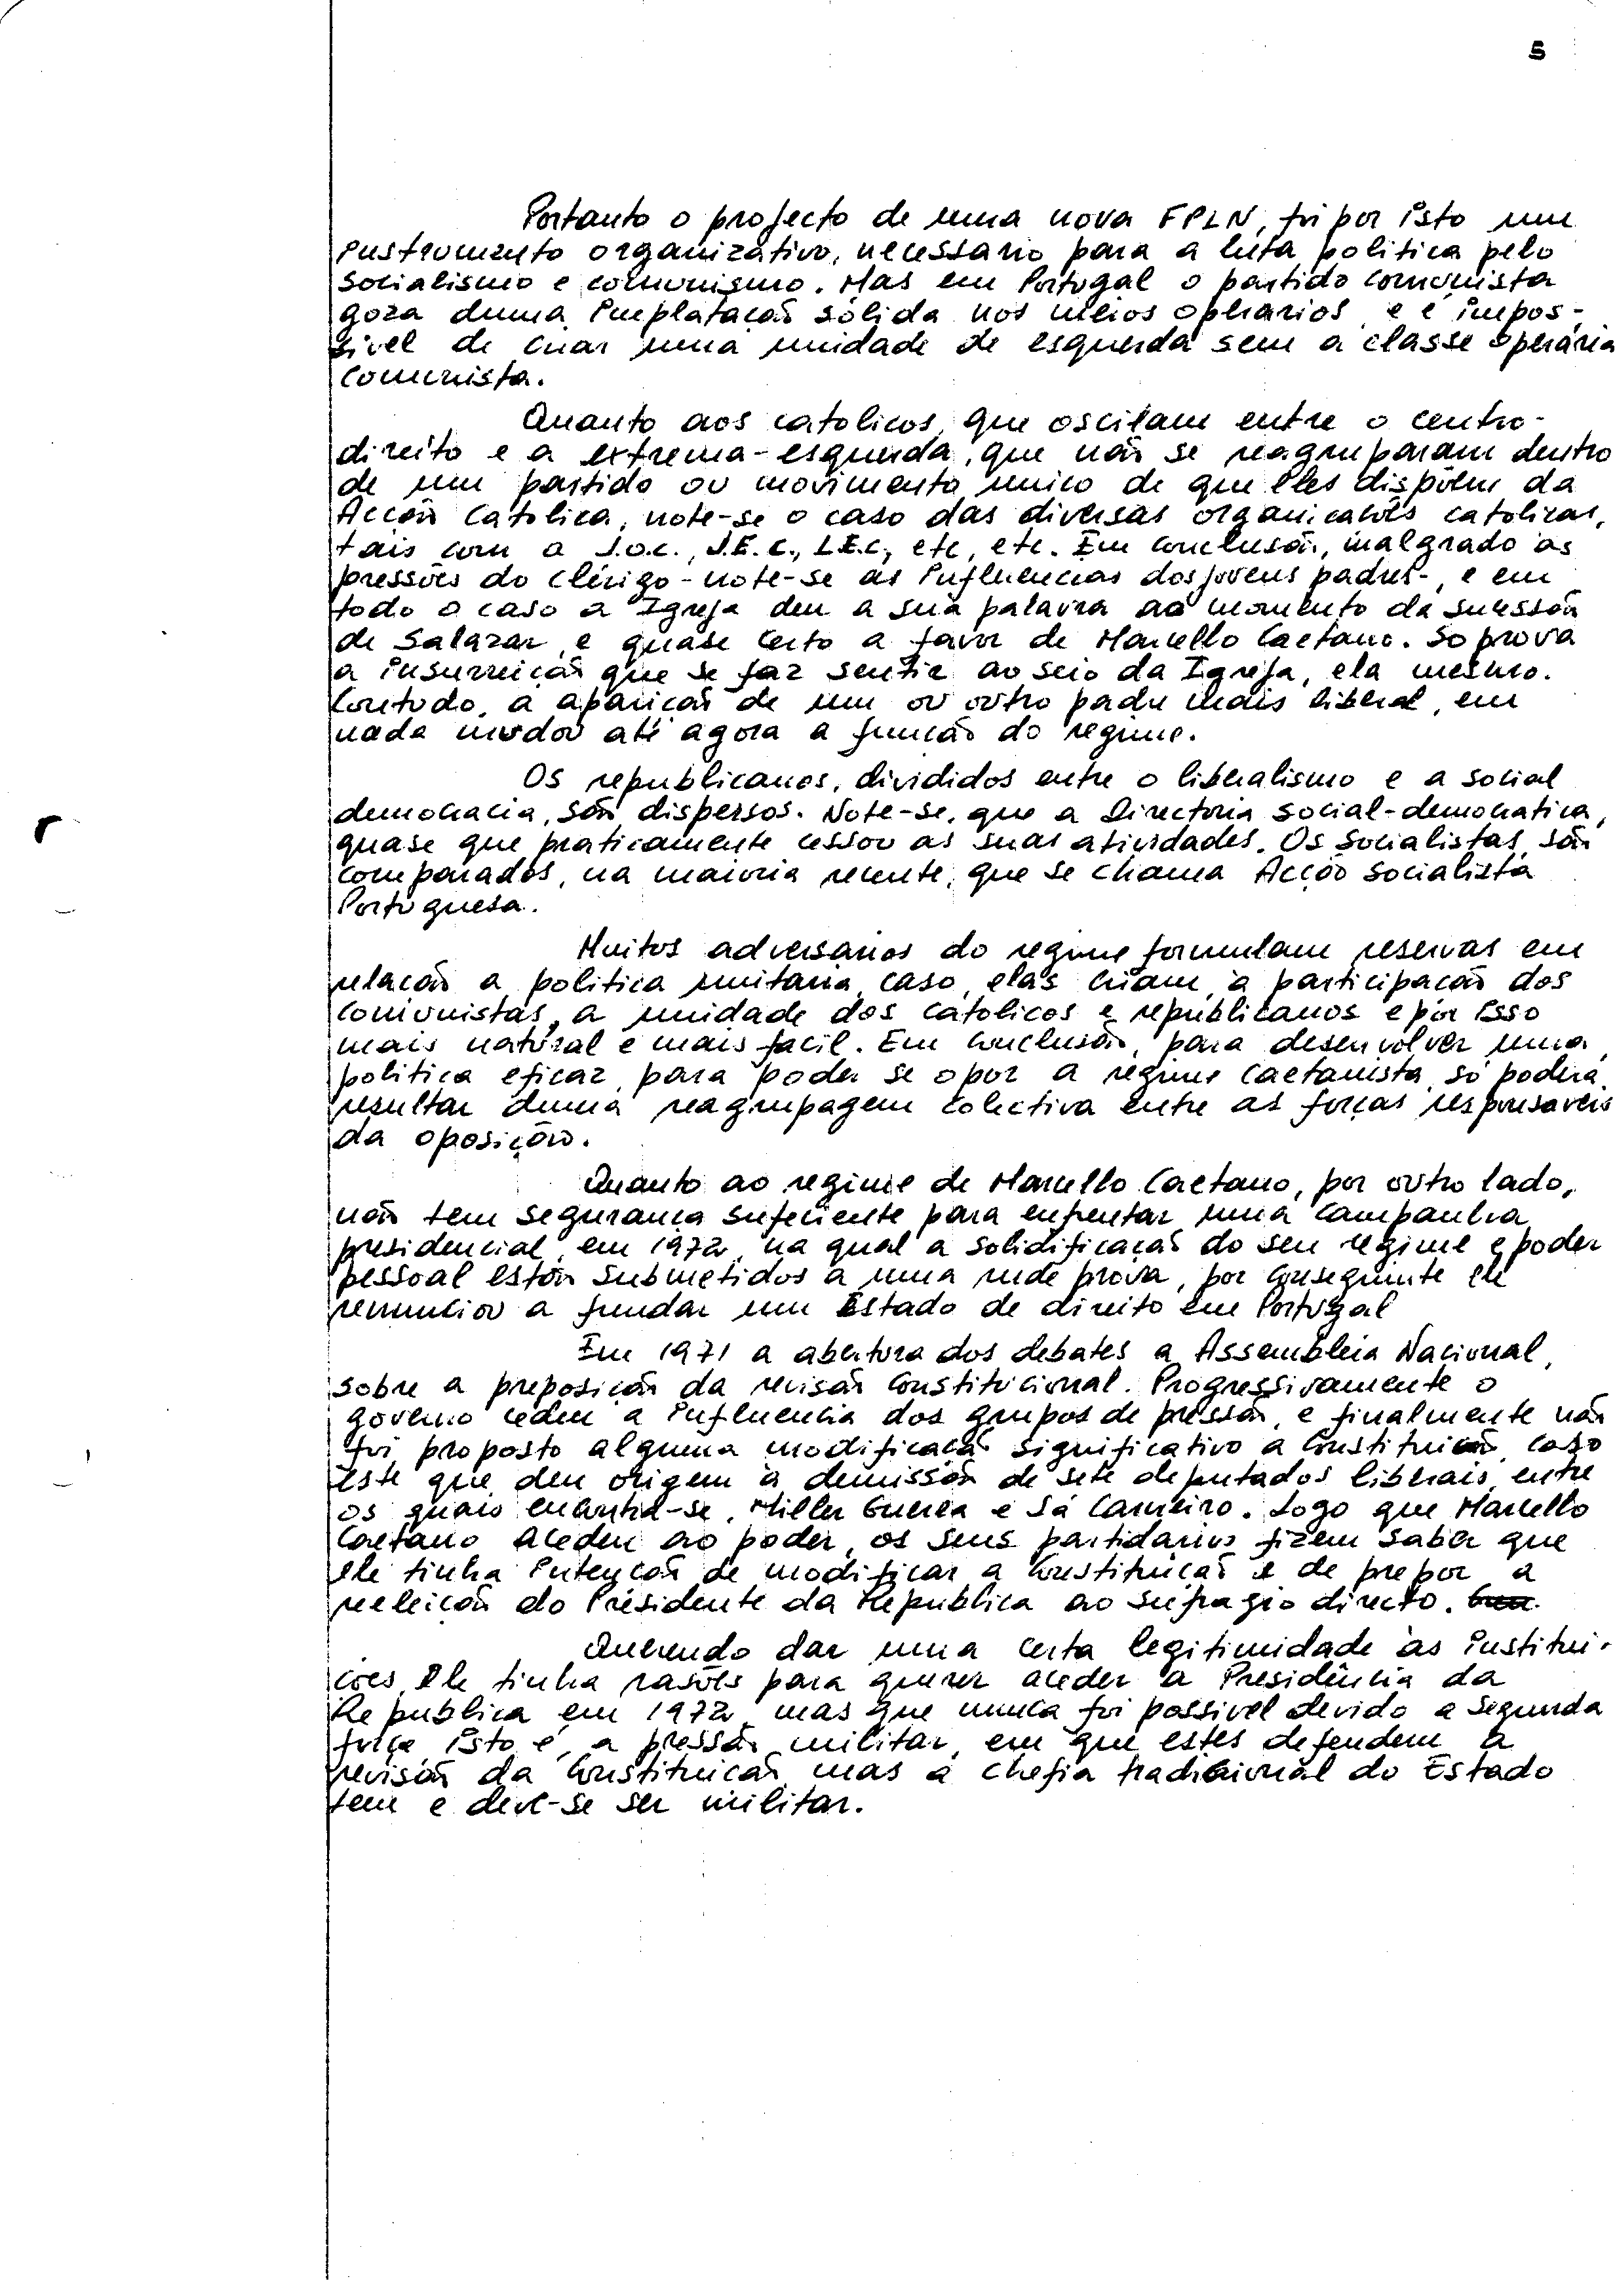 5
Portanto o projecto de uma nova FPLN, foi por isto um
instrumento organizativo, necessario para a luta politica pelo
socialismo e comunismo. Mas em Portugal o partido comunista
goza duma implatação sólida nos meios operarios, e é impos-
sivel de criar uma unidade de esquerda sem a classe operária
comunista.
Quanto aos catolicos, que oscilam entre o centro-
direito e a extrema-esquerda, que não se reagruparam dentro
de um partido ou movimento unico de que eles dispõem da
Accão Catolica, note-se o caso das diversas organicações catolicas,
tais com a J.O.C., J.E.C., L.E.C, etc, etc. Em conclusão, malgrado as
pressões do clérigo - note-se as influencias dos jovens padres-, e em
todo o caso a Igreja deu a sua palavra ao momento da sucessão
de Salazar, e quase certo a favor de Marcello Caetano. So prova
a insurreicão que se faz sentir ao seio da Igreja, ela mesmo.
Contudo, a aparicão de um ou outro padre mais liberal, em
nada mudou até agora a função do regime.
Os republicanos, divididos entre o liberalismo e a social
democracia, são dispersos. Note-se, que a Directoria social-democratica,
quase que praticamente cessou as suas atividades. Os socialistas, são
comparados, na maioria recente, que se chama Acção Socialista
Portuguesa.
Muitos adversarios do regime formulam reservas em
relacão a politica unitaria, caso, elas criam, a participacão dos
comunistas, a unidade dos catolicos e republicanos e por isso
mais natural e mais facil. Em conclusão, para desenvolver uma
politica eficaz, para poder se opor a regime caetanista, só poderá
resultar duma reagrupagem colectiva entre as forças responsaveis
da oposição.
Quanto ao regime de Marcello Caetano, por outro lado,
não tem seguranca suficiente para enfrentar uma campanha
presidencial, em 1972, na qual a solidificaçaõ do seu regime e poder
pessoal estão submetidos a uma rude prova, por conseguinte ele
renunciou a fundar um Estado de direito em Portugal
Em 1971 a abertura dos debates a Assembleia Nacional,
sobre a preposicão da revisão Constitucional. Progressivamente o
governo cedeu a influencia dos grupos de pressão, e finalmente não
foi proposto alguma modificacão significativo a Constituicão, caso
este que deu origem à demissão de sete deputados liberais, entre
os quais encontra-se, Miller Guerra e Sá Carneiro. Logo que Marcello
Caetano acedeu ao poder, os seus partidarios fizem saber que
ele tinha intenção de modificar a Constituiçaõ e de prepor a
reeleicão do Presidente da Republica ao sufragio directo.
Querendo dar uma certa legitimidade às institui-
coes, ele tinha rasões para querer aceder a Presidência da
Republica em 1972, mas que nunca foi possivel devido a segunda
força, isto é, a pressão militar, em que estes defendem a
revisão da Constituicão, mas a chefia tradicional do Estado
tem e deve-se ser militar.